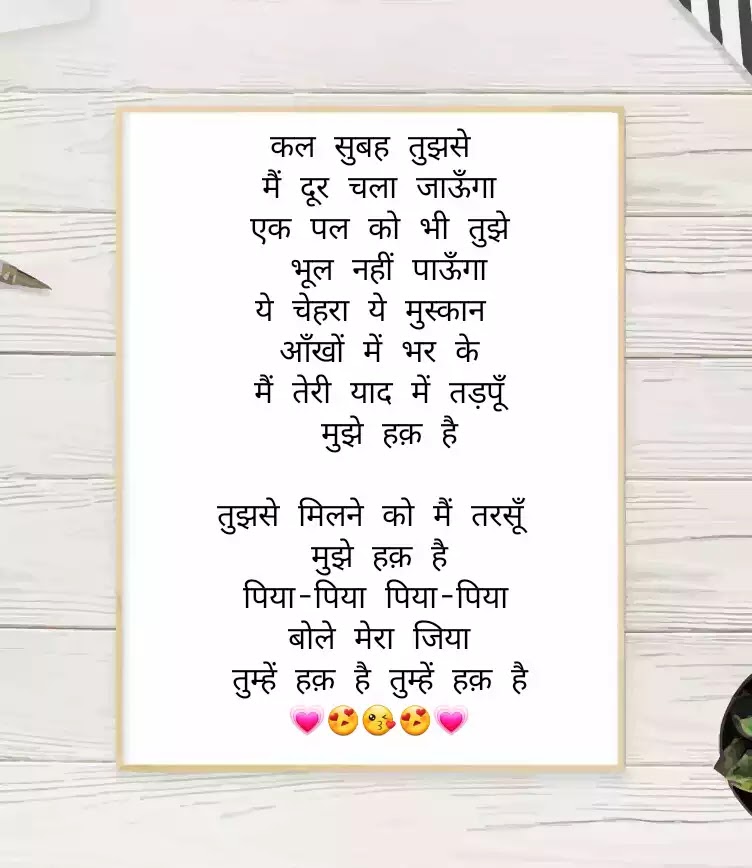 कल सुबह तुझसे
मैं दूर चला जाऊँगा
एक पल को भी तुझे
भूल नहीं पाऊँगा
ये चेहरा ये मुस्कान
आँखों में भर के
मैं तेरी याद में तड़पूँ
मुझे हक़ है
तुझसे मिलने को मैं तरसूँ
मुझे हक़ है
पिया-पिया पिया-पिया
बोले मेरा जिया
तुम्हें हक़ है तुम्हें हक़ है
💗😍😘😍💗